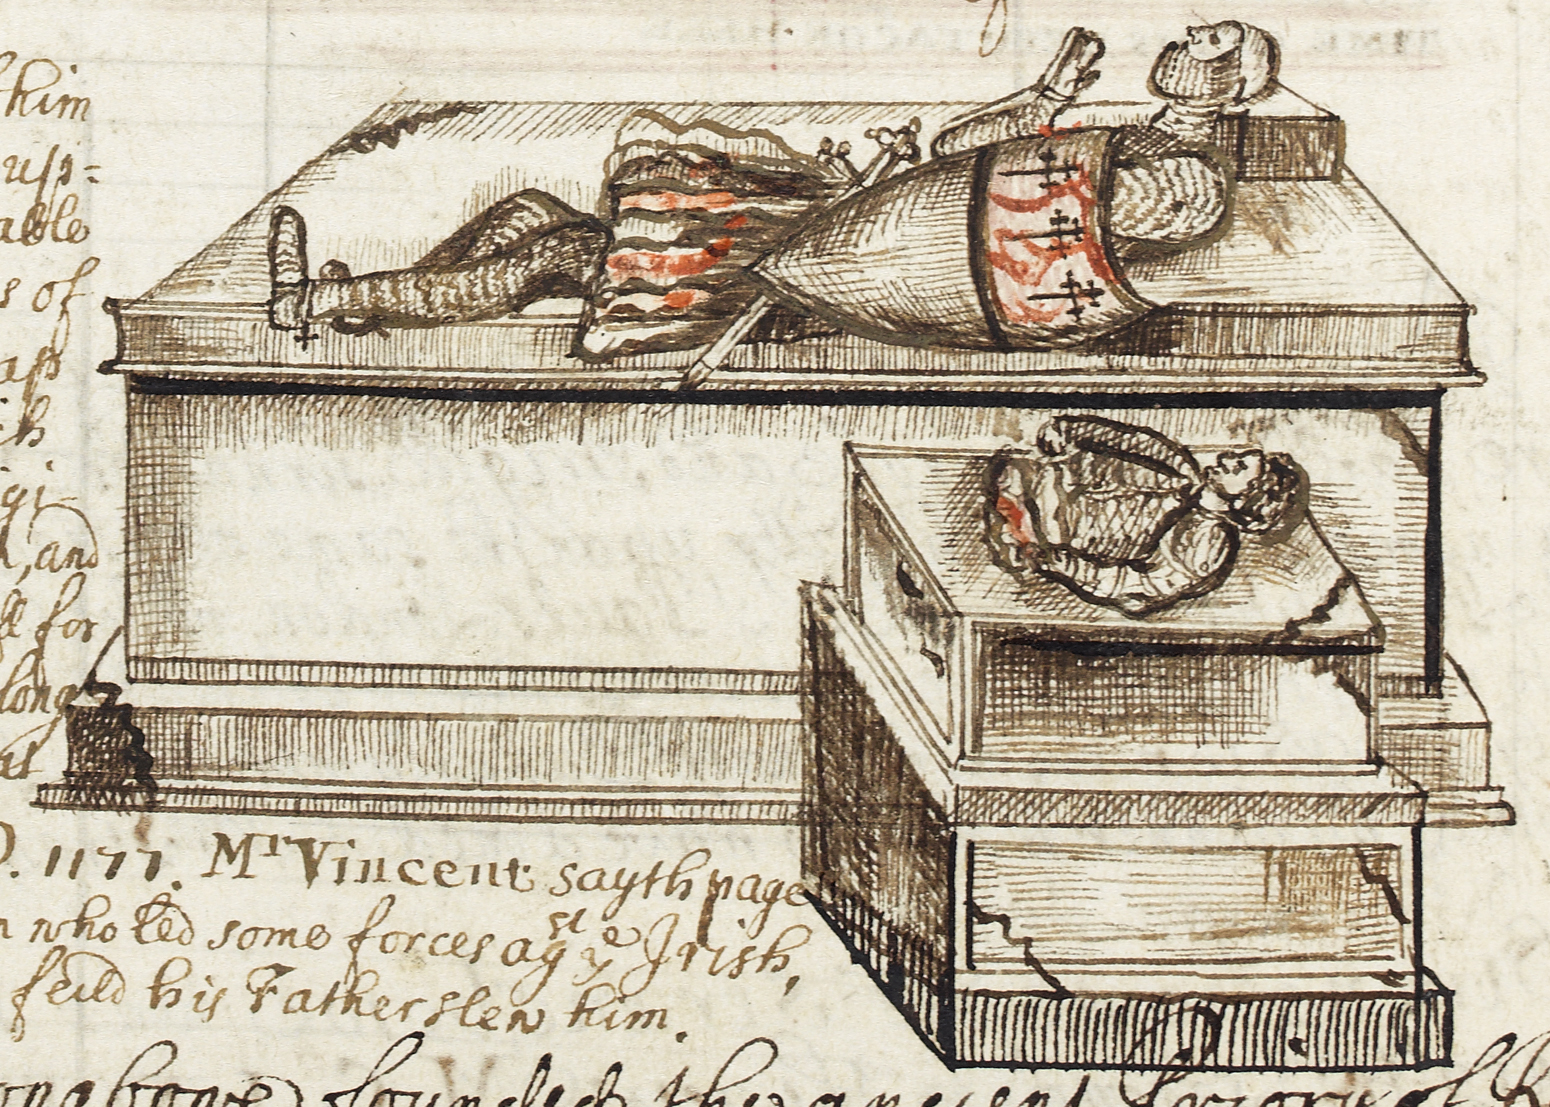 him
upp-
able
s of
as
ch
gi
d, and
ll for
long
at
D. 1177. Mr Vincent sayth page
n who led some forces agst ye Irish,
feild his Father slew him.
founded the ancient Priory of